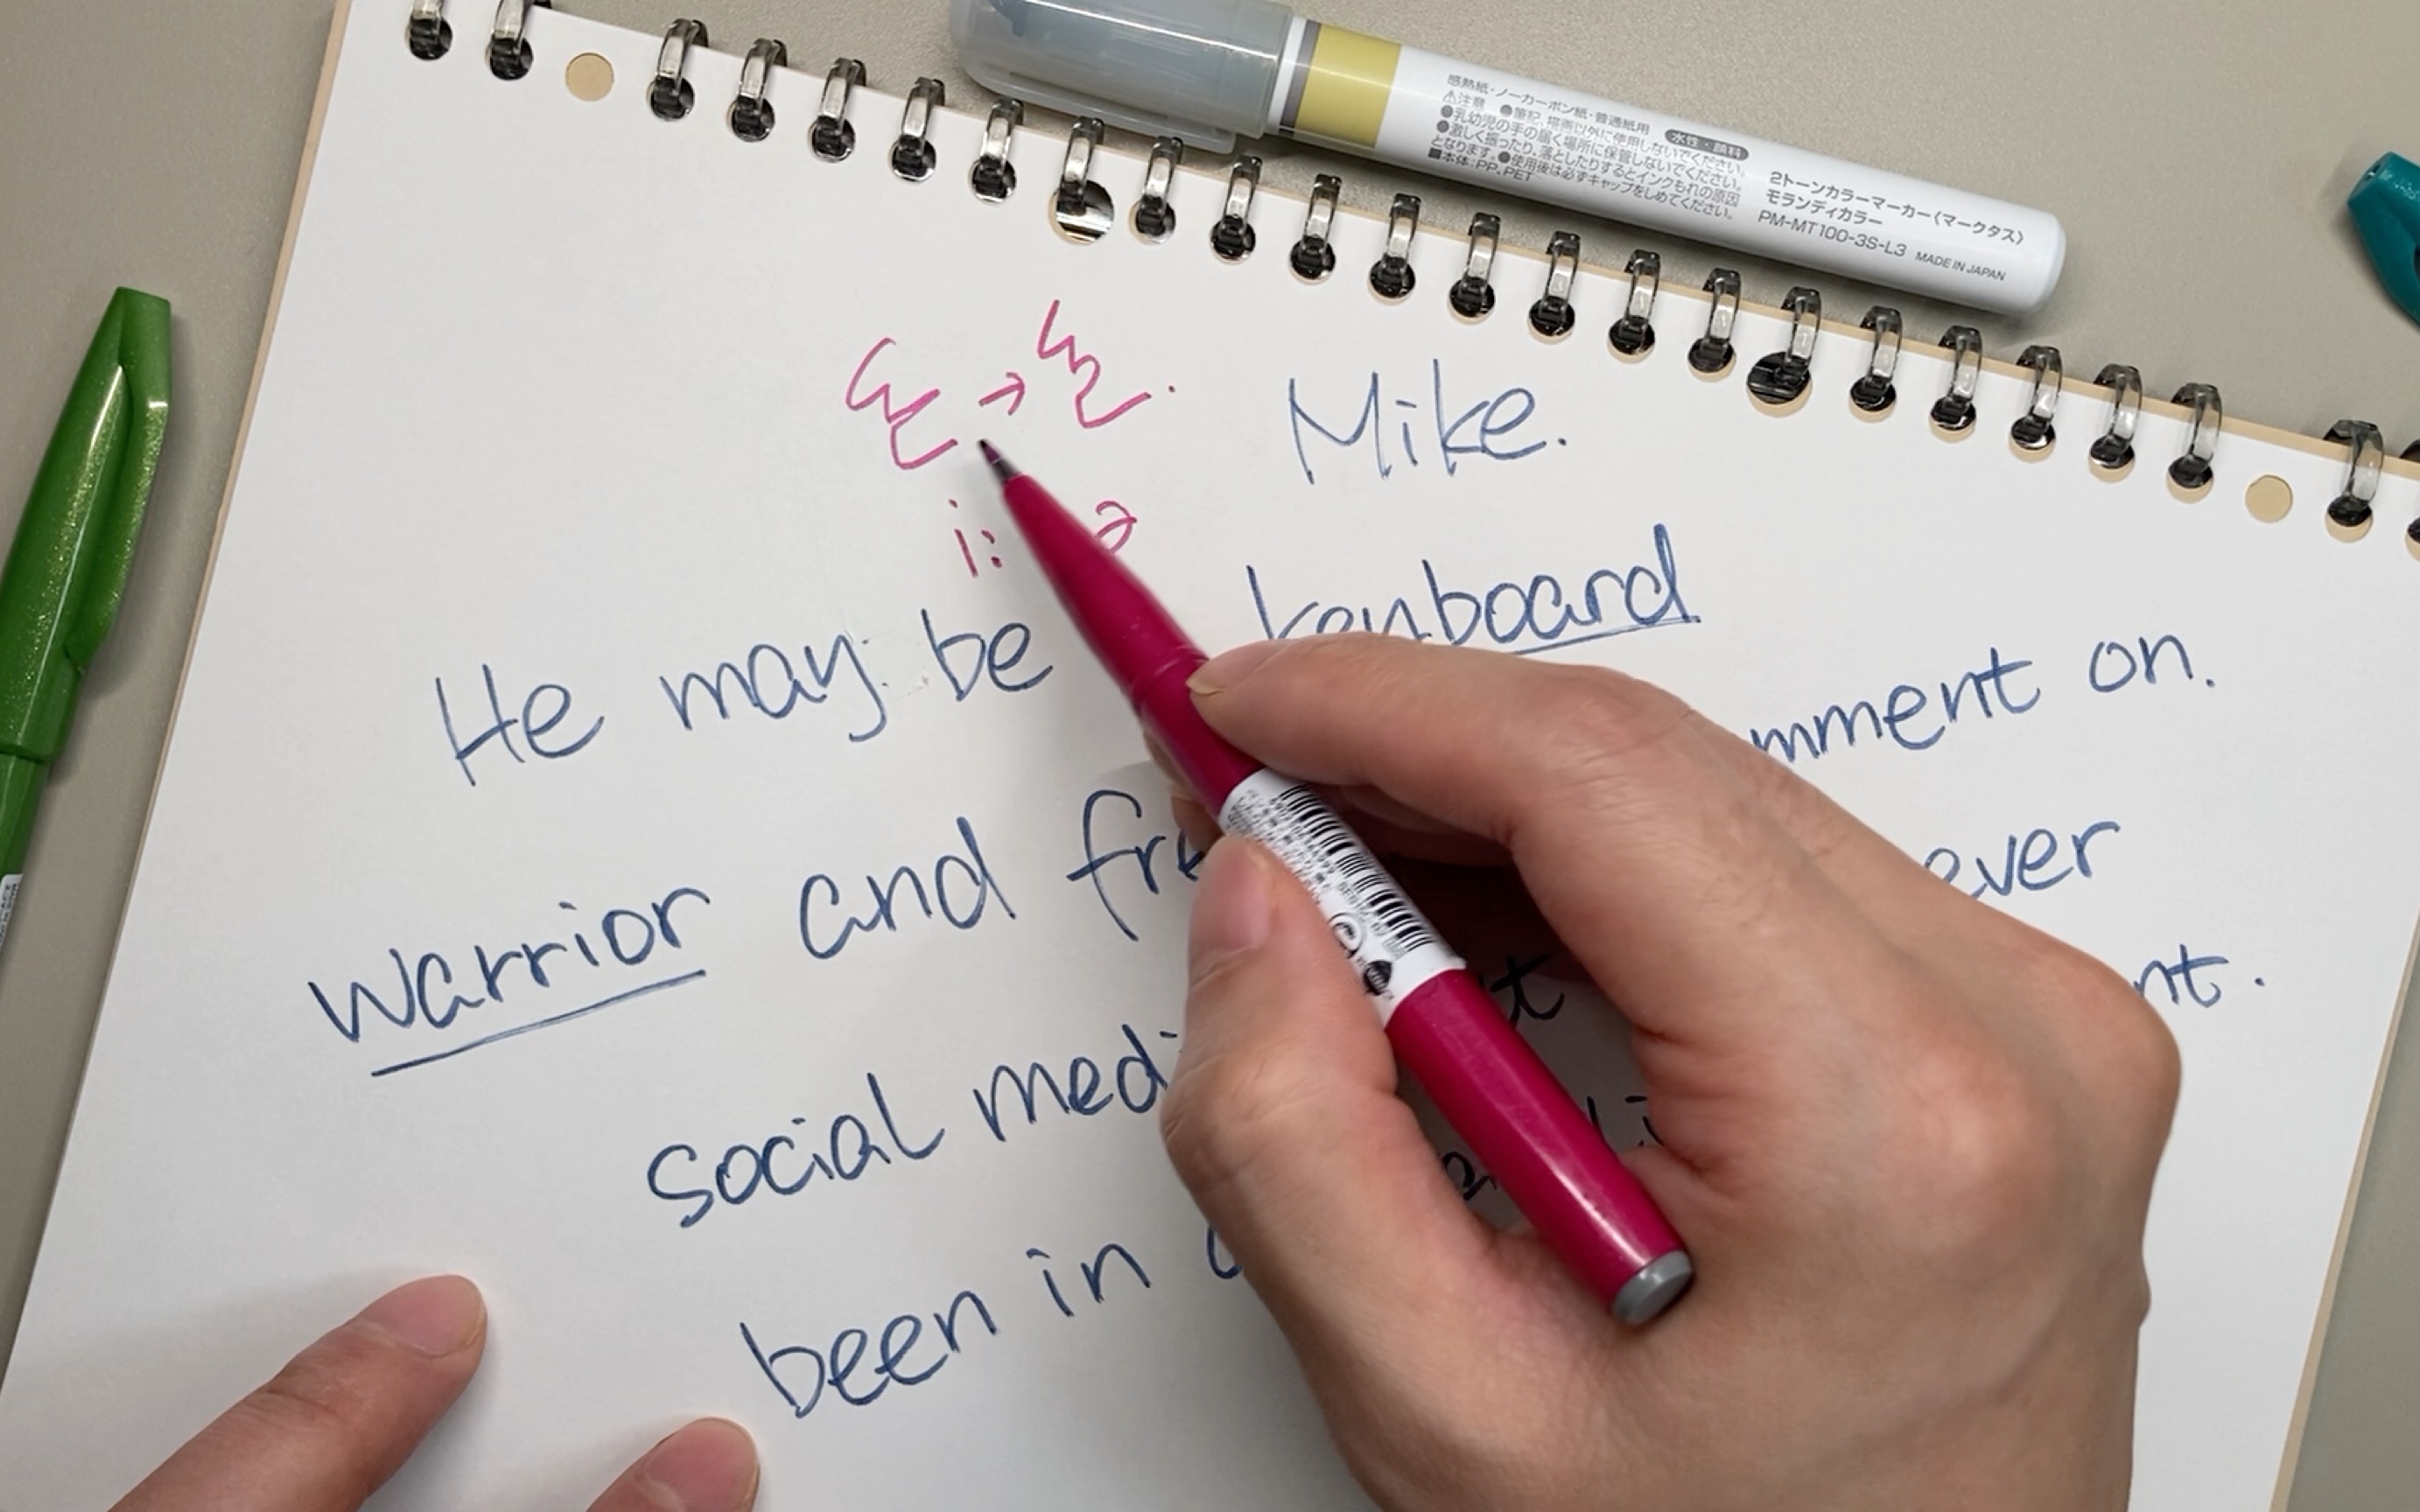 感熱紙・ノーカーボン紙・普通紙用
⚠注意 ●筆記、描画以外に使用しないでください。 水性・顔料
●乳幼児の手の届く場所に保管しないでください。
●激しく振ったり、落としたりするとインクもれの原因
となります。●使用後は必ずキャップをしめてください。
■本体：PP、PET
2トーンカラーマーカー〈マークタス〉
モランディカラー
PM-MT100-3S-L3 MADE IN JAPAN
→
Mike.
i:
He may be keyboard
mment on.
warrior and fre ever
social medi t nt.
been in